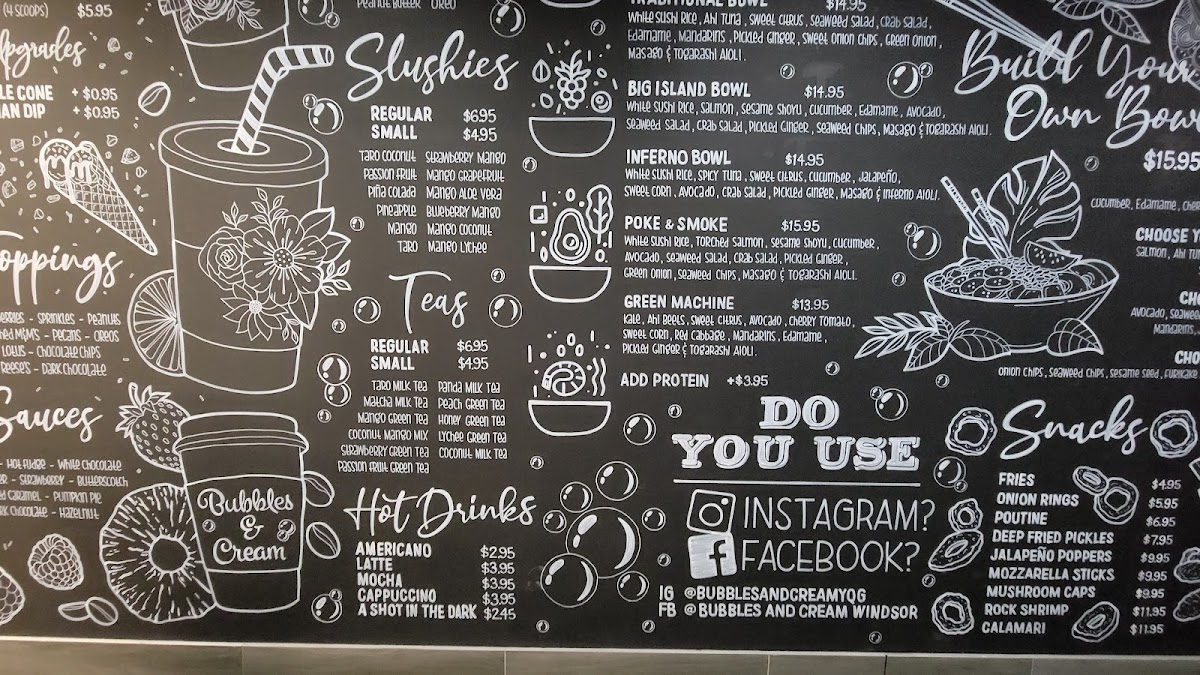 (4 SCOOPS) $5.95
pgrades
LE CONE + $0.95
AN DIP + $0.95
oppings
ERRIES - SPRINKLES - PEANUTS
HED M&M'S - PECANS - OREOS
LOTUS - CHOCOLATE CHIPS
REESE'S - DARK CHOCOLATE
Sauces
HOT FUDGE - WHITE CHOCOLATE
ER - STRAWBERRY - BUTTERSCOTCH
ED CARAMEL - PUMPKIN PIE
RK CHOCOLATE - HAZELNUT
Bubbles
&
Cream
PEANUT BUTTER OREO
Slushies
REGULAR $6.95
SMALL $4.95
TARO COCONUT STRAWBERRY MANGO
PASSION FRUIT MANGO GRAPEFRUIT
PIÑA COLADA MANGO ALOE VERA
PINEAPPLE BLUEBERRY MANGO
MANGO MANGO COCONUT
TARO MANGO LYCHEE
Teas
REGULAR $6.95
SMALL $4.95
TARO MILK TEA PANDA MILK TEA
MATCHA MILK TEA PEACH GREEN TEA
MANGO GREEN TEA HONEY GREEN TEA
COCONUT MANGO MIX LYCHEE GREEN TEA
STRAWBERRY GREEN TEA COCONUT MILK TEA
PASSION FRUIT GREEN TEA
Hot Drinks
AMERICANO $2.95
LATTE $3.95
MOCHA $3.95
CAPPUCCINO $3.95
A SHOT IN THE DARK $2.45
TRADITIONAL BOWL $14.95
WHITE SUSHI RICE, AHI TUNA, SWEET CITRUS, SEAWEED SALAD, CRAB SALAD,
EDAMAME, MANDARINS, PICKLED GINGER, SWEET ONION CHIPS, GREEN ONION,
MASAGO & TOGARASHI AIOLI.
BIG ISLAND BOWL $14.95
WHITE SUSHI RICE, SALMON, SESAME SHOYU, CUCUMBER, EDAMAME, AVOCADO,
SEAWEED SALAD, CRAB SALAD, PICKLED GINGER, SEAWEED CHIPS, MASAGO & TOGARASHI AIOLI.
INFERNO BOWL $14.95
WHITE SUSHI RICE, SPICY TUNA, SWEET CITRUS, CUCUMBER, JALAPEÑO,
SWEET CORN, AVOCADO, CRAB SALAD, PICKLED GINGER, MASAGO & INFERNO AIOLI.
POKE & SMOKE $15.95
WHITE SUSHI RICE, TORCHED SALMON, SESAME SHOYU, CUCUMBER,
AVOCADO, SEAWEED SALAD, CRAB SALAD, PICKLED GINGER,
GREEN ONION, SEAWEED CHIPS, MASAGO & TOGARASHI AIOLI.
GREEN MACHINE $13.95
KALE, AHI BEETS, SWEET CITRUS, AVOCADO, CHERRY TOMATO,
SWEET CORN, RED CABBAGE, MANDARINS, EDAMAME,
PICKLED GINGER & TOGARASHI AIOLI.
ADD PROTEIN +$3.95
DO
YOU USE
INSTAGRAM?
FACEBOOK?
IG @BUBBLESANDCREAMYQG
FB @BUBBLES AND CREAM WINDSOR
Build Your
Own Bowl
$15.95
CUCUMBER, EDAMAME, CHER
CHOOSE Y
SALMON, AHI TU
CH
AVOCADO, SEAWEE
MANDARINS,
CHO
ONION CHIPS, SEAWEED CHIPS, SESAME SEED, FURIKAKE
Snacks
FRIES $4.95
ONION RINGS $5.95
POUTINE $6.95
DEEP FRIED PICKLES $7.95
JALAPEÑO POPPERS $9.95
MOZZARELLA STICKS $9.95
MUSHROOM CAPS $9.95
ROCK SHRIMP $11.95
CALAMARI $11.95